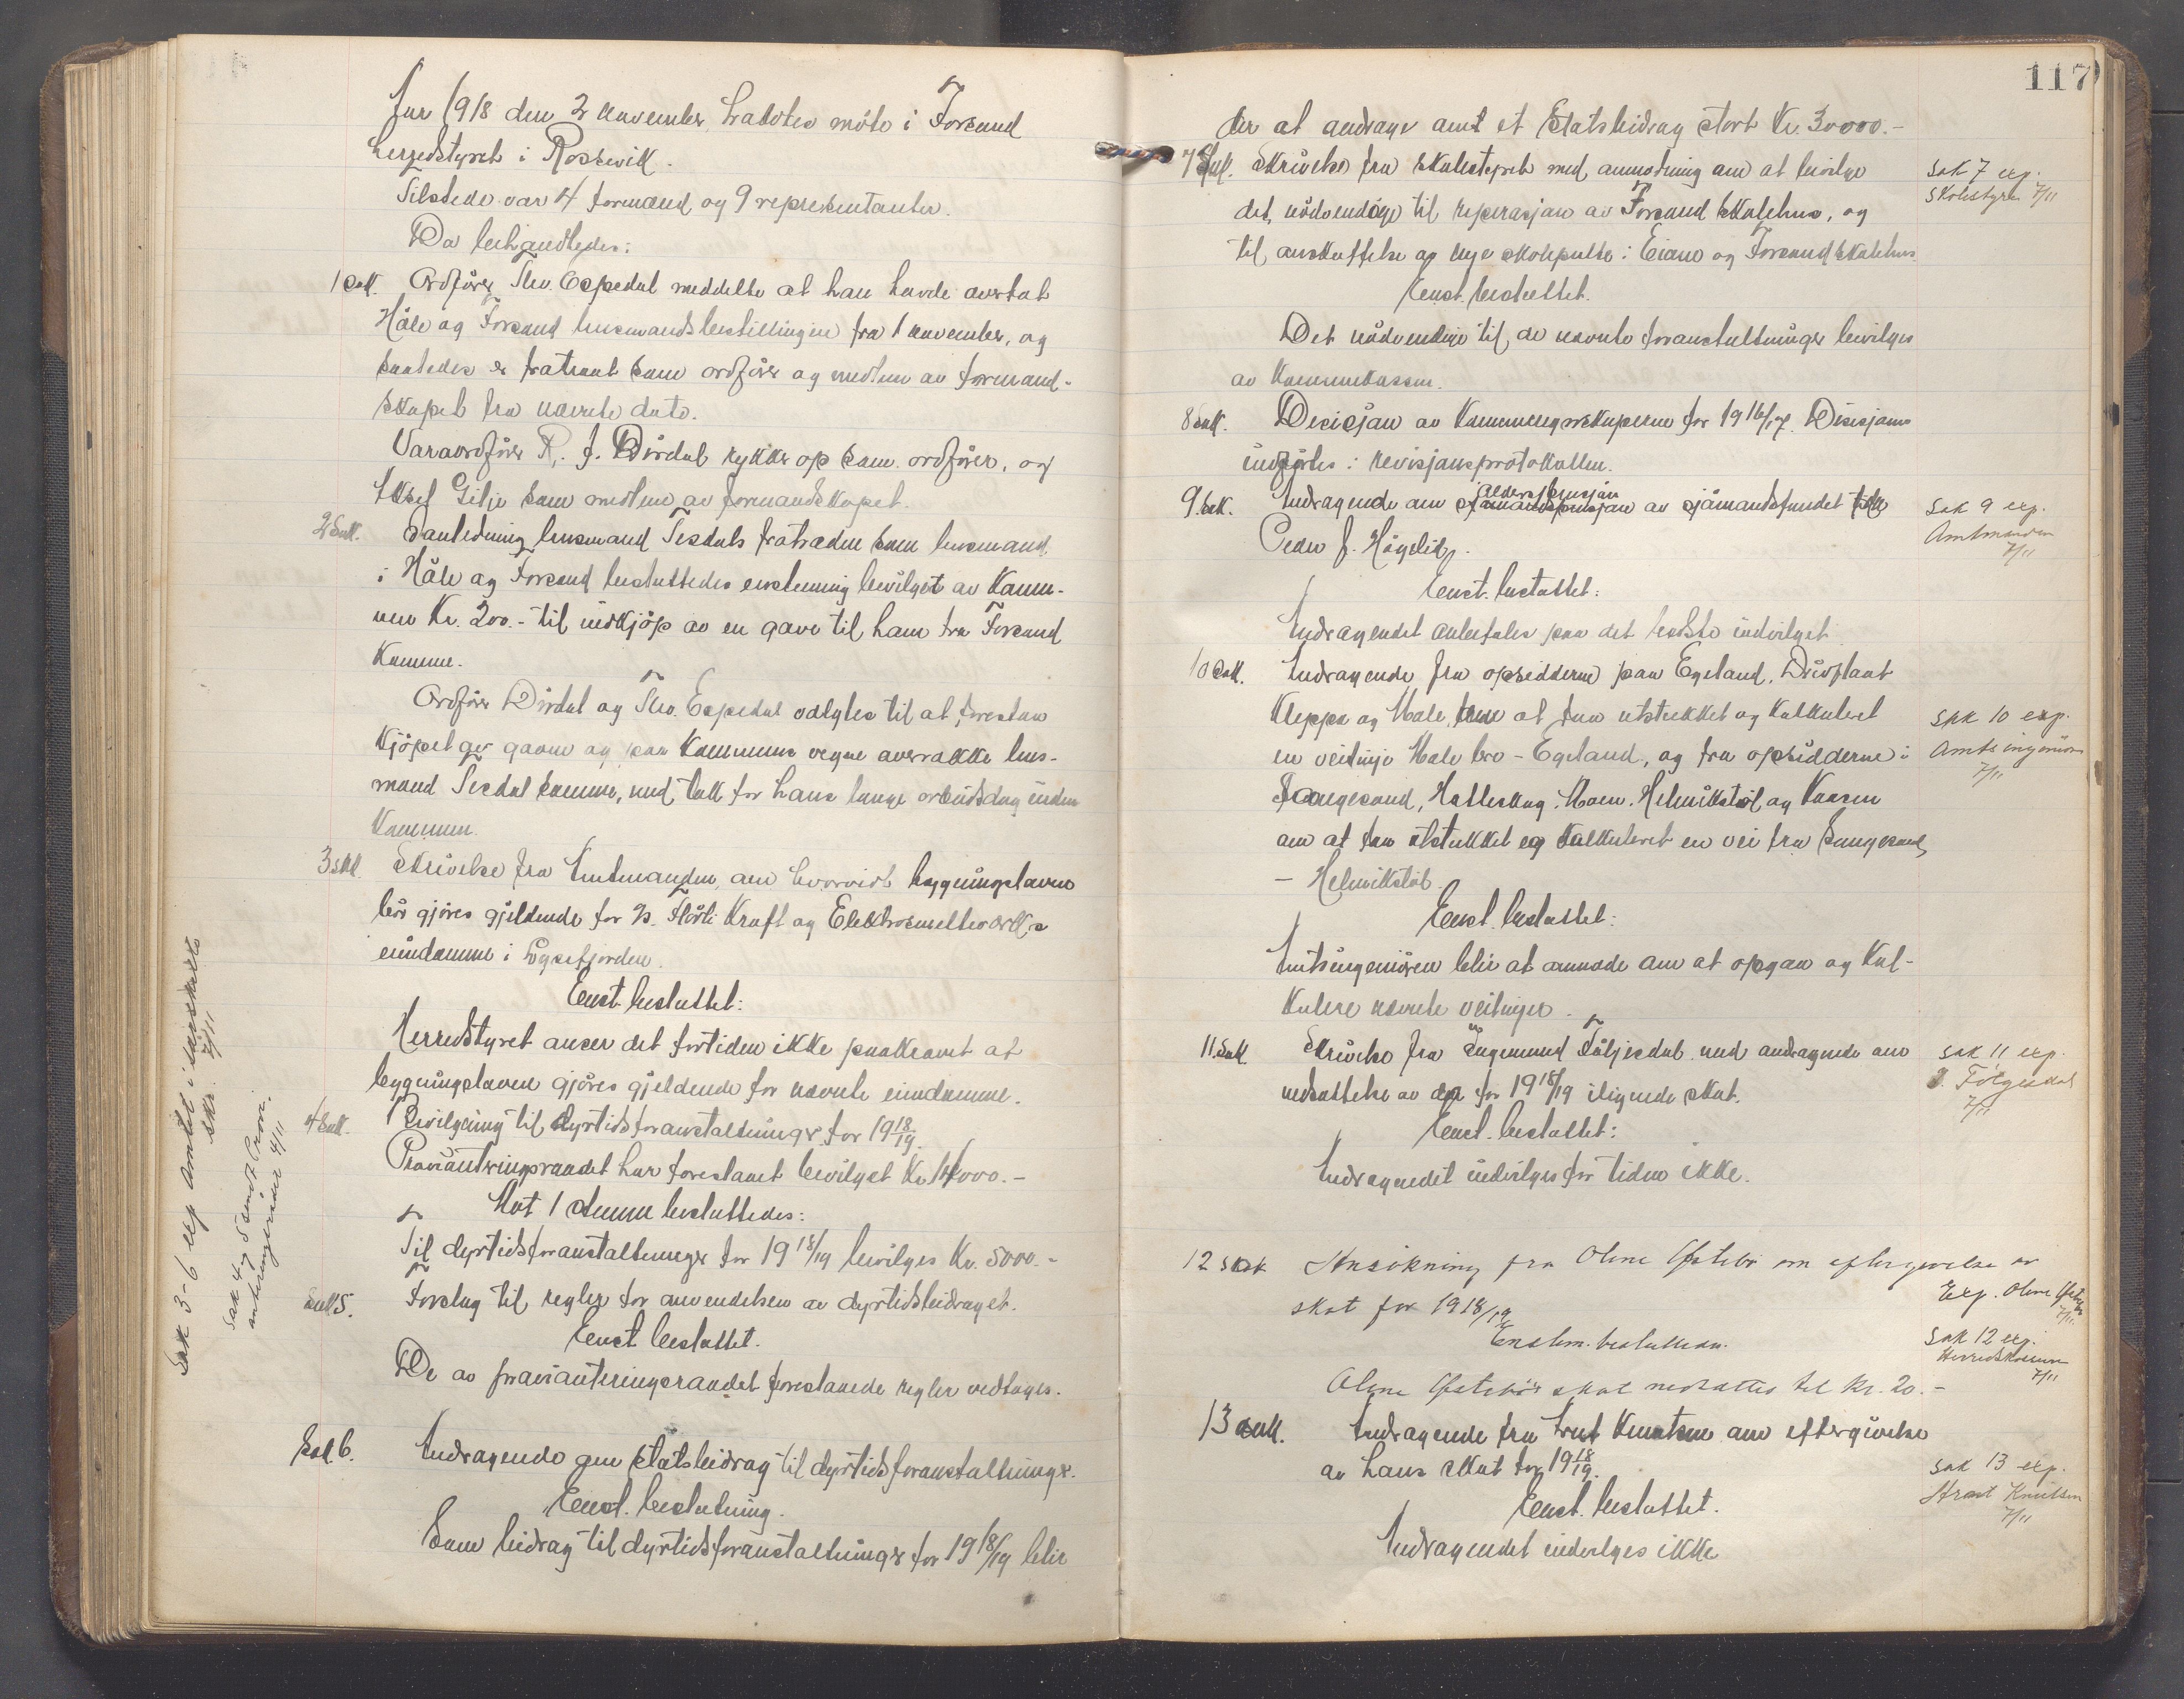 Aar 1918 den 2 november holdtes möte i Forsand
herredstyret i Rossevik.
Tilstede var 4 formænd og 9 representanter.
Da behandledes:
1 Sak. Ordförer Thv. Espedal meddelte at han havde overtat
Höle og Forsand lensmandsbestillingen fra 1 november, og
saaledes er fratraat som ordförer og medlem av formand-
skapet fra nævnte dato.
Varaordförer R. J. Dirdal rykker op som ordförer, og
Aksel Gilje som medlem av formandskapet.
2 Sak. I anledning lensmand Tesdals fratræden som lensmand
i Höle og Forsand besluttedes enstemmig bevilget av Kommu-
nen Kr. 200.- til indkjöp av en gave til ham fra Forsand
Kommune.
Ordförer Dirdal og Thv. Espedal valgtes til at forestaa
kjöpet av gaven og paa Kommunens vegne overrække lens-
mand Tesdal samme, med takk for hans lange arbeidsdag inden
Kommunen.
3 Sak. Skrivelse fra Amtmanden, om hvorvidt bygningsloven
bör gjöres gjeldende for A/s. Flörli Kraft og Elektrosmelteverks
eiendomme i Lysefjorden.
Enst. besluttet:
Herredstyret anser det fortiden ikke paakrævet at
bygningsloven gjöres gjeldende for nævnte eiendomme.
4 Sak. Bevilgning til dyrtidsforanstaltninger for 1918/19.
Provianteringsraadet har foreslaaet bevilget Kr. 14000.-
Mot 1 stemme besluttedes:
Til dyrtidsforanstaltninger for 1918/19 bevilges Kr. 5000.-
Sak 5. Forslag til regler for anvendelsen av dyrtidsbidraget.
Enst. besluttet.
De av provianteringsraadet foreslaaede regler vedtages.
Sak 6. Andragende om statsbidrag til dyrtidsforanstaltninger.
Enst. beslutning.
Som bidrag til dyrtidsforanstaltninger for 1918/19 blir
Sak 3-6 exp Amtet i særskilt
skr. 7/11
Sak 4 og 5 sendt Provi-
anteringsraadet 7/11
117
der at andrage amt et Statsbidrag stort Kr. 30000.-
7 Sak. Skrivelse fra skolestyret med anmodning om at bevilge
det nödvendige til reperasjon av Forsand skolehus, og
til anskaffelse av nye skolepulte i Eiane og Forsand skolehus.
Enst. besluttet.
Det nödvendige til de nævnte foranstaltninger bevilges
av Kommunekassen.
Sak 7 exp.
Skolestyret 7/11
8 Sak. Decisjon av Kommuneregnskaperne for 1916/17. Decisjonen
indförtes i revisjonsprotokollen.
9. Sak. Andragende om alderspensjon av sjömandsfondet til
Peder J. Högelid.
Enst. besluttet:
Andragendet anbefales paa det bedste indvilget
Sak 9 exp.
Amtmanden
7/11
10 Sak. Andragende fra opsidderne paa Egeland,
Kleppa og Hale, om at faa utstukket og kalkulert
en veilinje Hale bro - Egeland, og fra opsidderne i
Songesand, Hatleskog. Moen. Helmikstöl og Kaasen
om at faa utstukket og kalkuleret en vei fra Songesand,
- Helmikstöl.
Enst. besluttet:
Amtsingeniören blir at anmode om at opgaa og kal-
kulere nævnte veilinjer.
Sak 10 exp.
Amtsingeniören
7/11
11. Sak Skrivelse fra Ingemund Följesdal med andragende om
nedsættelse av den for 1918/19 ilignede skat.
Enst. besluttet:
Andragendet indvilges for tiden ikke.
Sak 11 exp.
I. Følgesdal
7/11
12 Sak Ansökning fra Oline Østebö om eftergivelse av
skat for 1918/19
Enstem. beslutken.
Oline Østebös skat nedsattes til Kr. 20.-
Exp. Oline Østebö
7/11.
Sak 12 exp.
Herredskassereren
7/11
13 Sak. Andragende fra Knutsen om eftergivelse
av hans skat for 1918/19.
Enst. besluttet.
Andragendet indvilges ikke
Sak 13 exp.
Knutsen
7/11